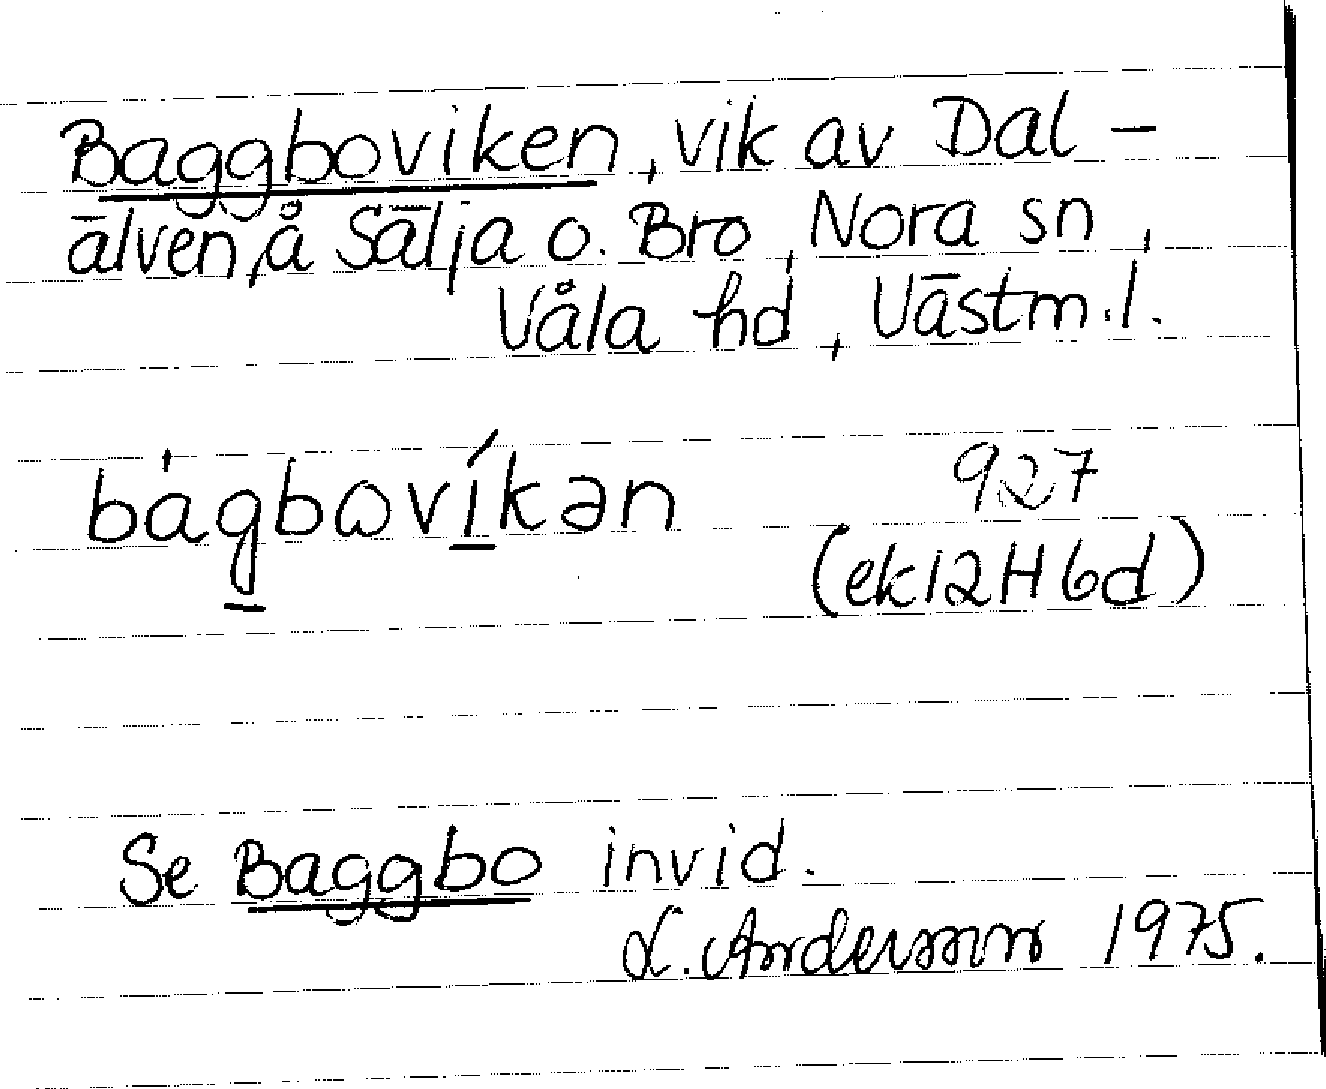 Baggboviken, vik av Dal-
älven, å Sälja o. Bro, Nora sn,
Våla hd, Västm.l.
bágbωvíkən 927
(ek12H6d)
Se Baggbo invid.
L. Andersson 1975.